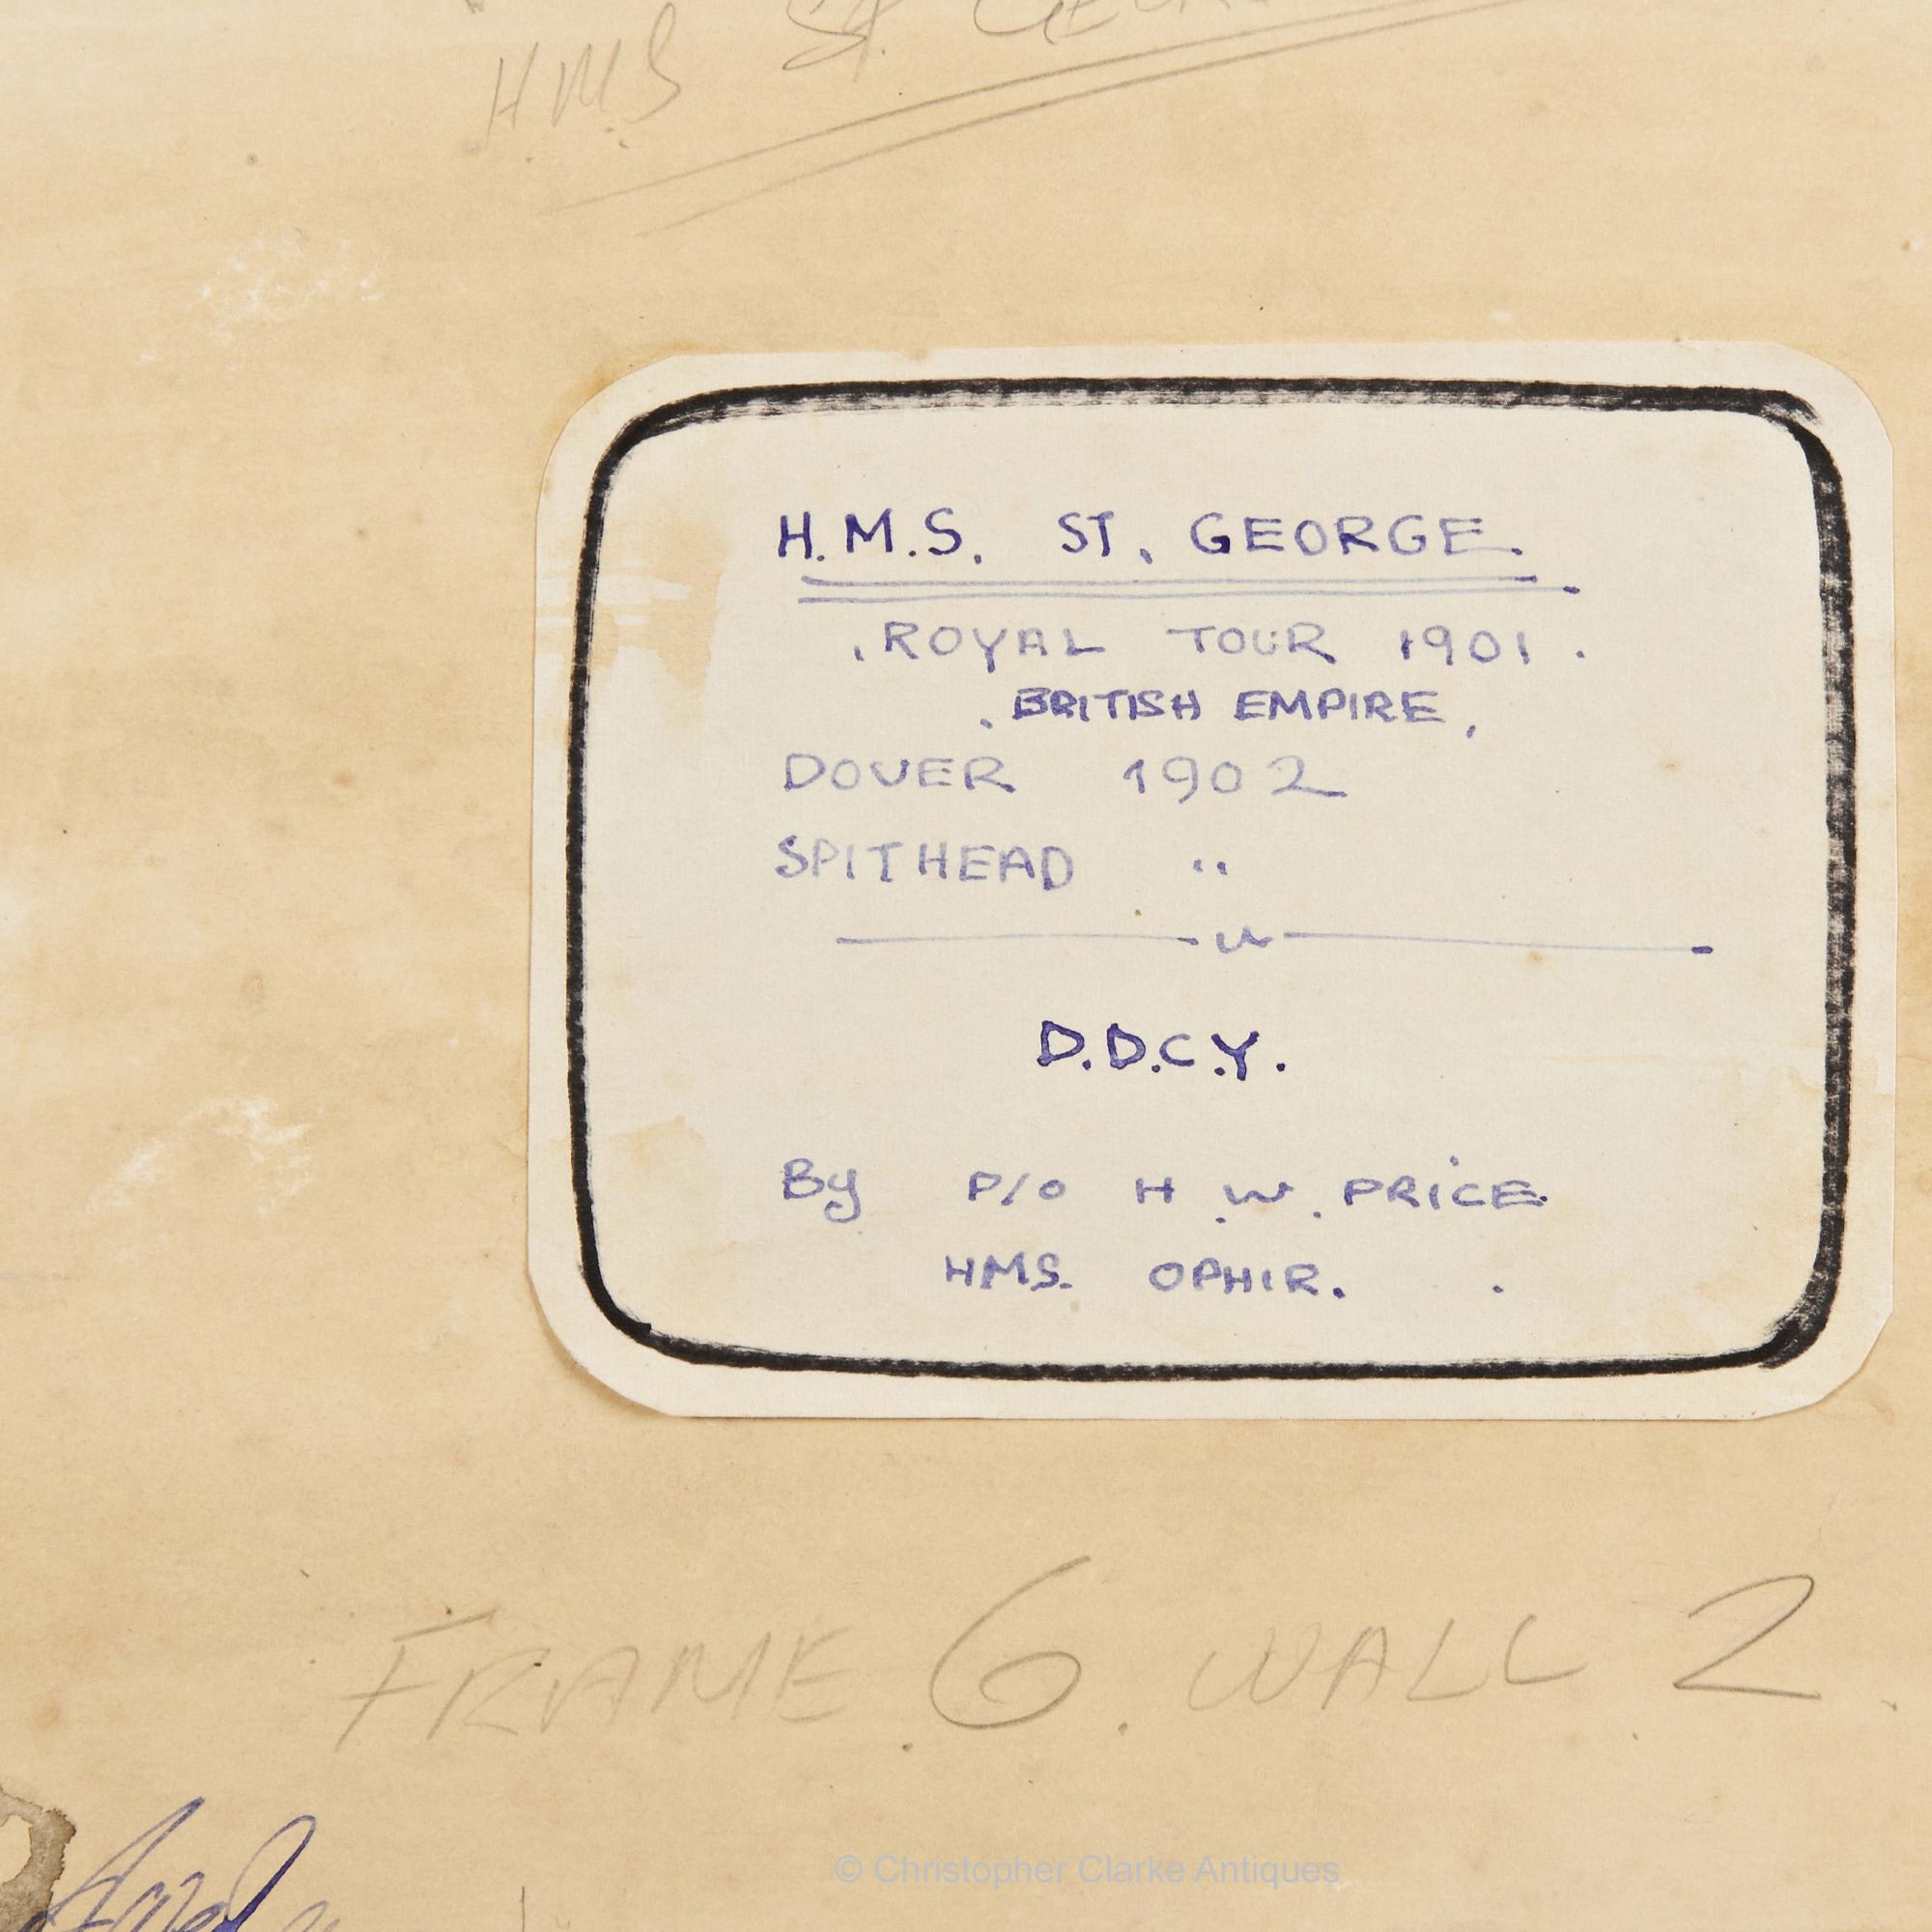 HMS St.
H.M.S. ST. GEORGE.
.ROYAL TOUR 1901.
. BRITISH EMPIRE.
DOVER 1902
SPITHEAD "
D.D.C.Y.
By P/O H.W. PRICE.
HMS. OPHIR.
FRAME 6. WALL 2.
© Christopher Clarke Antiques